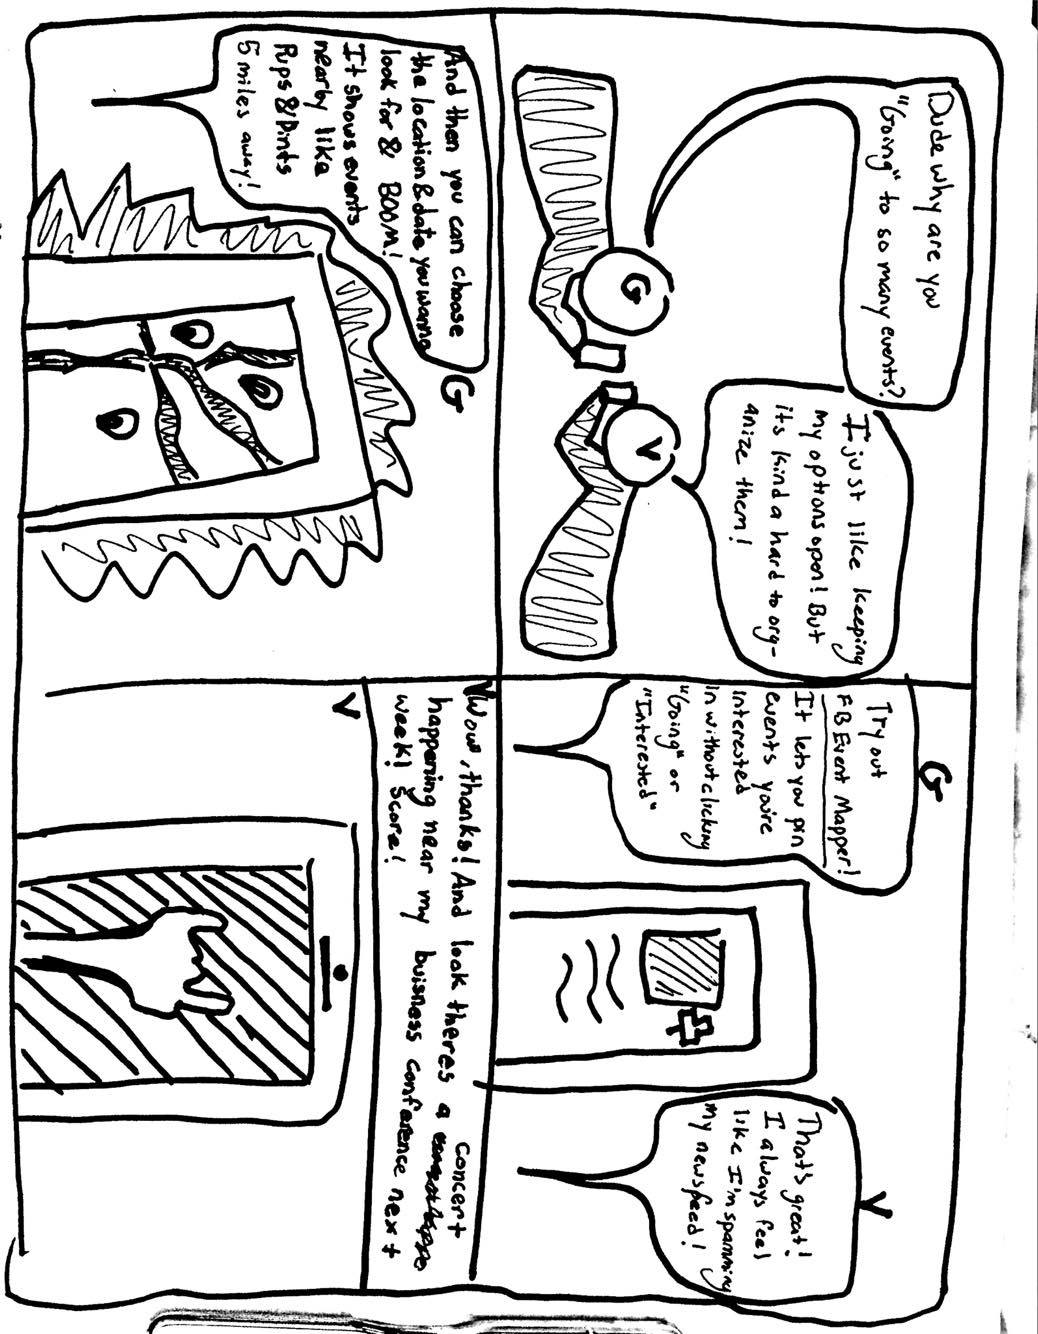 Dude why are you
"Going" to so many events?
G
V
I just like keeping
my options open! But
its kind a hard to org-
anize them!
G
Try out
FB Event Mapper!
It lets you pin
events you're
interested
in without clicking
"Going" or
"Interested"
V
That's great!
I always feel
like I'm spamming
my newsfeed!
G
And then you can choose
the location & date you wanna
look for & BOOM!
It shows events
nearby like
Pups & Pints
5 miles away!
V
Wow, thanks! And look theres a concert
happening near my buisness conference next
week! Score!
V